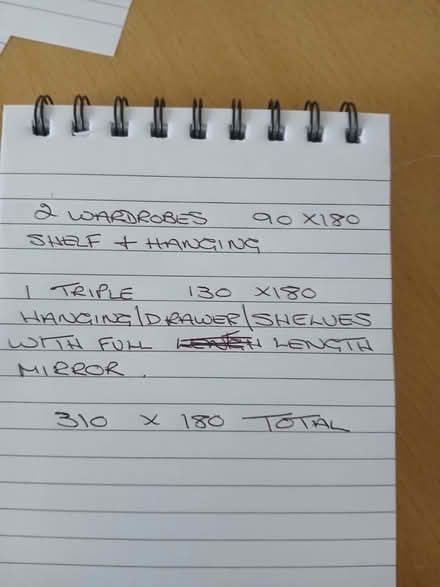 2 WARDROBES 90 X180
SHELF + HANGING
1 TRIPLE 130 X180
HANGING/DRAWER/SHELVES
WITH FULL LENGTH
MIRROR.
310 X 180 TOTAL